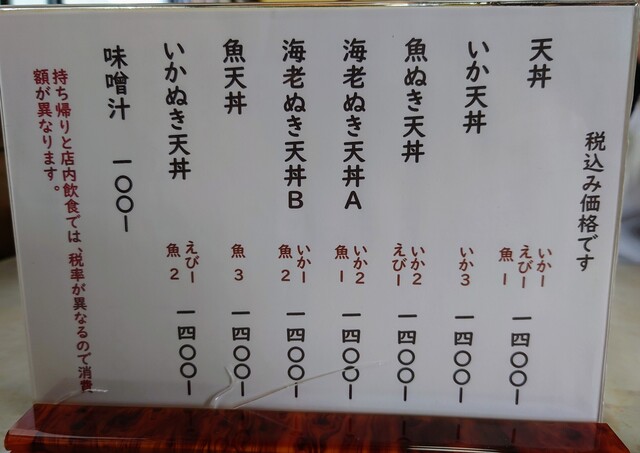 税込み価格です
天丼 いか一 えび一 魚一 一四〇〇一
いか天丼 いか3 一四〇〇一
魚ぬき天丼 いか2 えび一 一四〇〇一
海老ぬき天丼A いか2 魚一 一四〇〇一
海老ぬき天丼B いか一 魚2 一四〇〇一
魚天丼 魚3 一四〇〇一
いかぬき天丼 えび一 魚2 一四〇〇一
味噌汁 一〇〇一
持ち帰りと店内飲食では、税率が異なるので消費
額が異なります。